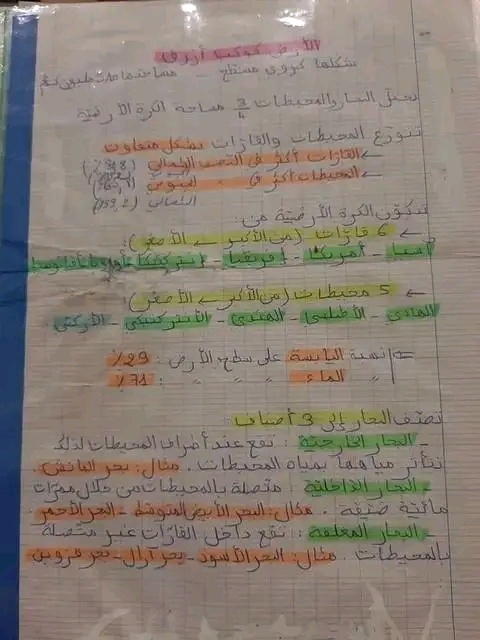 الأرض كوكب أزرق
شكلها كروي مسطح - مساحتها
تحتل البحار والمحيطات 3/4 مساحة الكرة الأرضية
تتوزع المحيطات والقارات بشكل متفاوت
← القارات أكثر في النصف الشمالي
← المحيطات أكثر في الجنوبي
الشمالي
تتكون الكرة الأرضية من:
← 6 قارات (من الأكبر ← الأصغر):
آسيا - أمريكا - إفريقيا - أنتركتيكا - أوروبا -
← 5 محيطات (من الأكبر ← الأصغر):
الهادي - الأطلسي - الهندي - الأنتركتيكي - الأركتي
نسبة اليابسة على سطح الأرض: 29٪
〃 الماء 〃 〃 〃 : 71٪
تصنف البحار إلى 3 أصناف
- البحار الخارجية: تقع عند أطراف المحيطات لذلك
تتأثر مياهها بمياه المحيطات. مثال: بحر المانش.
- البحار الداخلية: متصلة بالمحيطات من خلال ممرات
مائية ضيقة. مثال: البحر الأبيض المتوسط - البحر الأحمر
- البحار المغلقة: تقع داخل القارات غير متصلة
بالمحيطات. مثال: البحر الأسود - بحر آرال - بحر قزوين